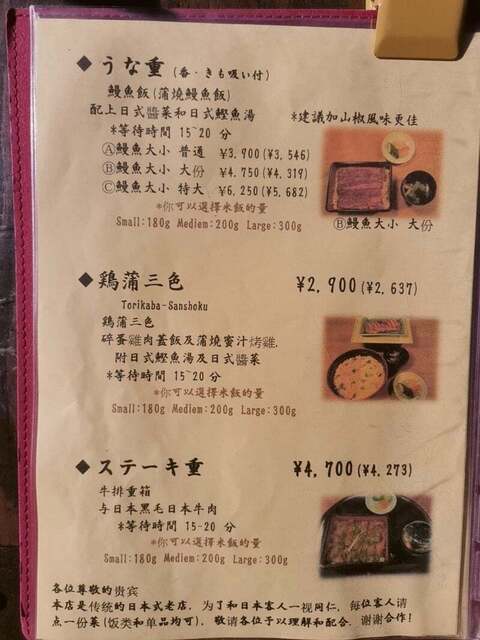 ◆うな重 (香・きも吸い付)
鰻魚飯(蒲燒鰻魚飯)
配上日式醬菜和日式鰹魚湯
*建議加山椒風味更佳
*等待時間 15~20 分
Ⓐ鰻魚大小 普通 ¥3,900(¥3,546)
Ⓑ鰻魚大小 大份 ¥4,750(¥4,319)
Ⓒ鰻魚大小 特大 ¥6,250(¥5,682)
*你可以選擇米飯的量
Small:180g Mediem:200g Large:300g
Ⓑ鰻魚大小 大份
◆鶏蒲三色 ¥2,900(¥2,637)
Torikaba-Sanshoku
鶏蒲三色
碎蛋雞肉蓋飯及蒲燒蜜汁烤雞.
附日式鰹魚湯及日式醬菜
*等待時間 15~20分
*你可以選擇米飯的量
Small:180g Mediem:200g Large:300g
◆ステーキ重 ¥4,700(¥4,273)
牛排重箱
与日本黑毛日本牛肉
*等待時間 15-20 分
*你可以選擇米飯的量
Small:180g Mediem:200g Large:300g
各位尊敬的贵宾
本店是传统的日本式老店，为了和日本客人一视同仁，每位客人请
点一份菜(饭类和单品均可)，敬请各位予以理解和配合。谢谢合作!